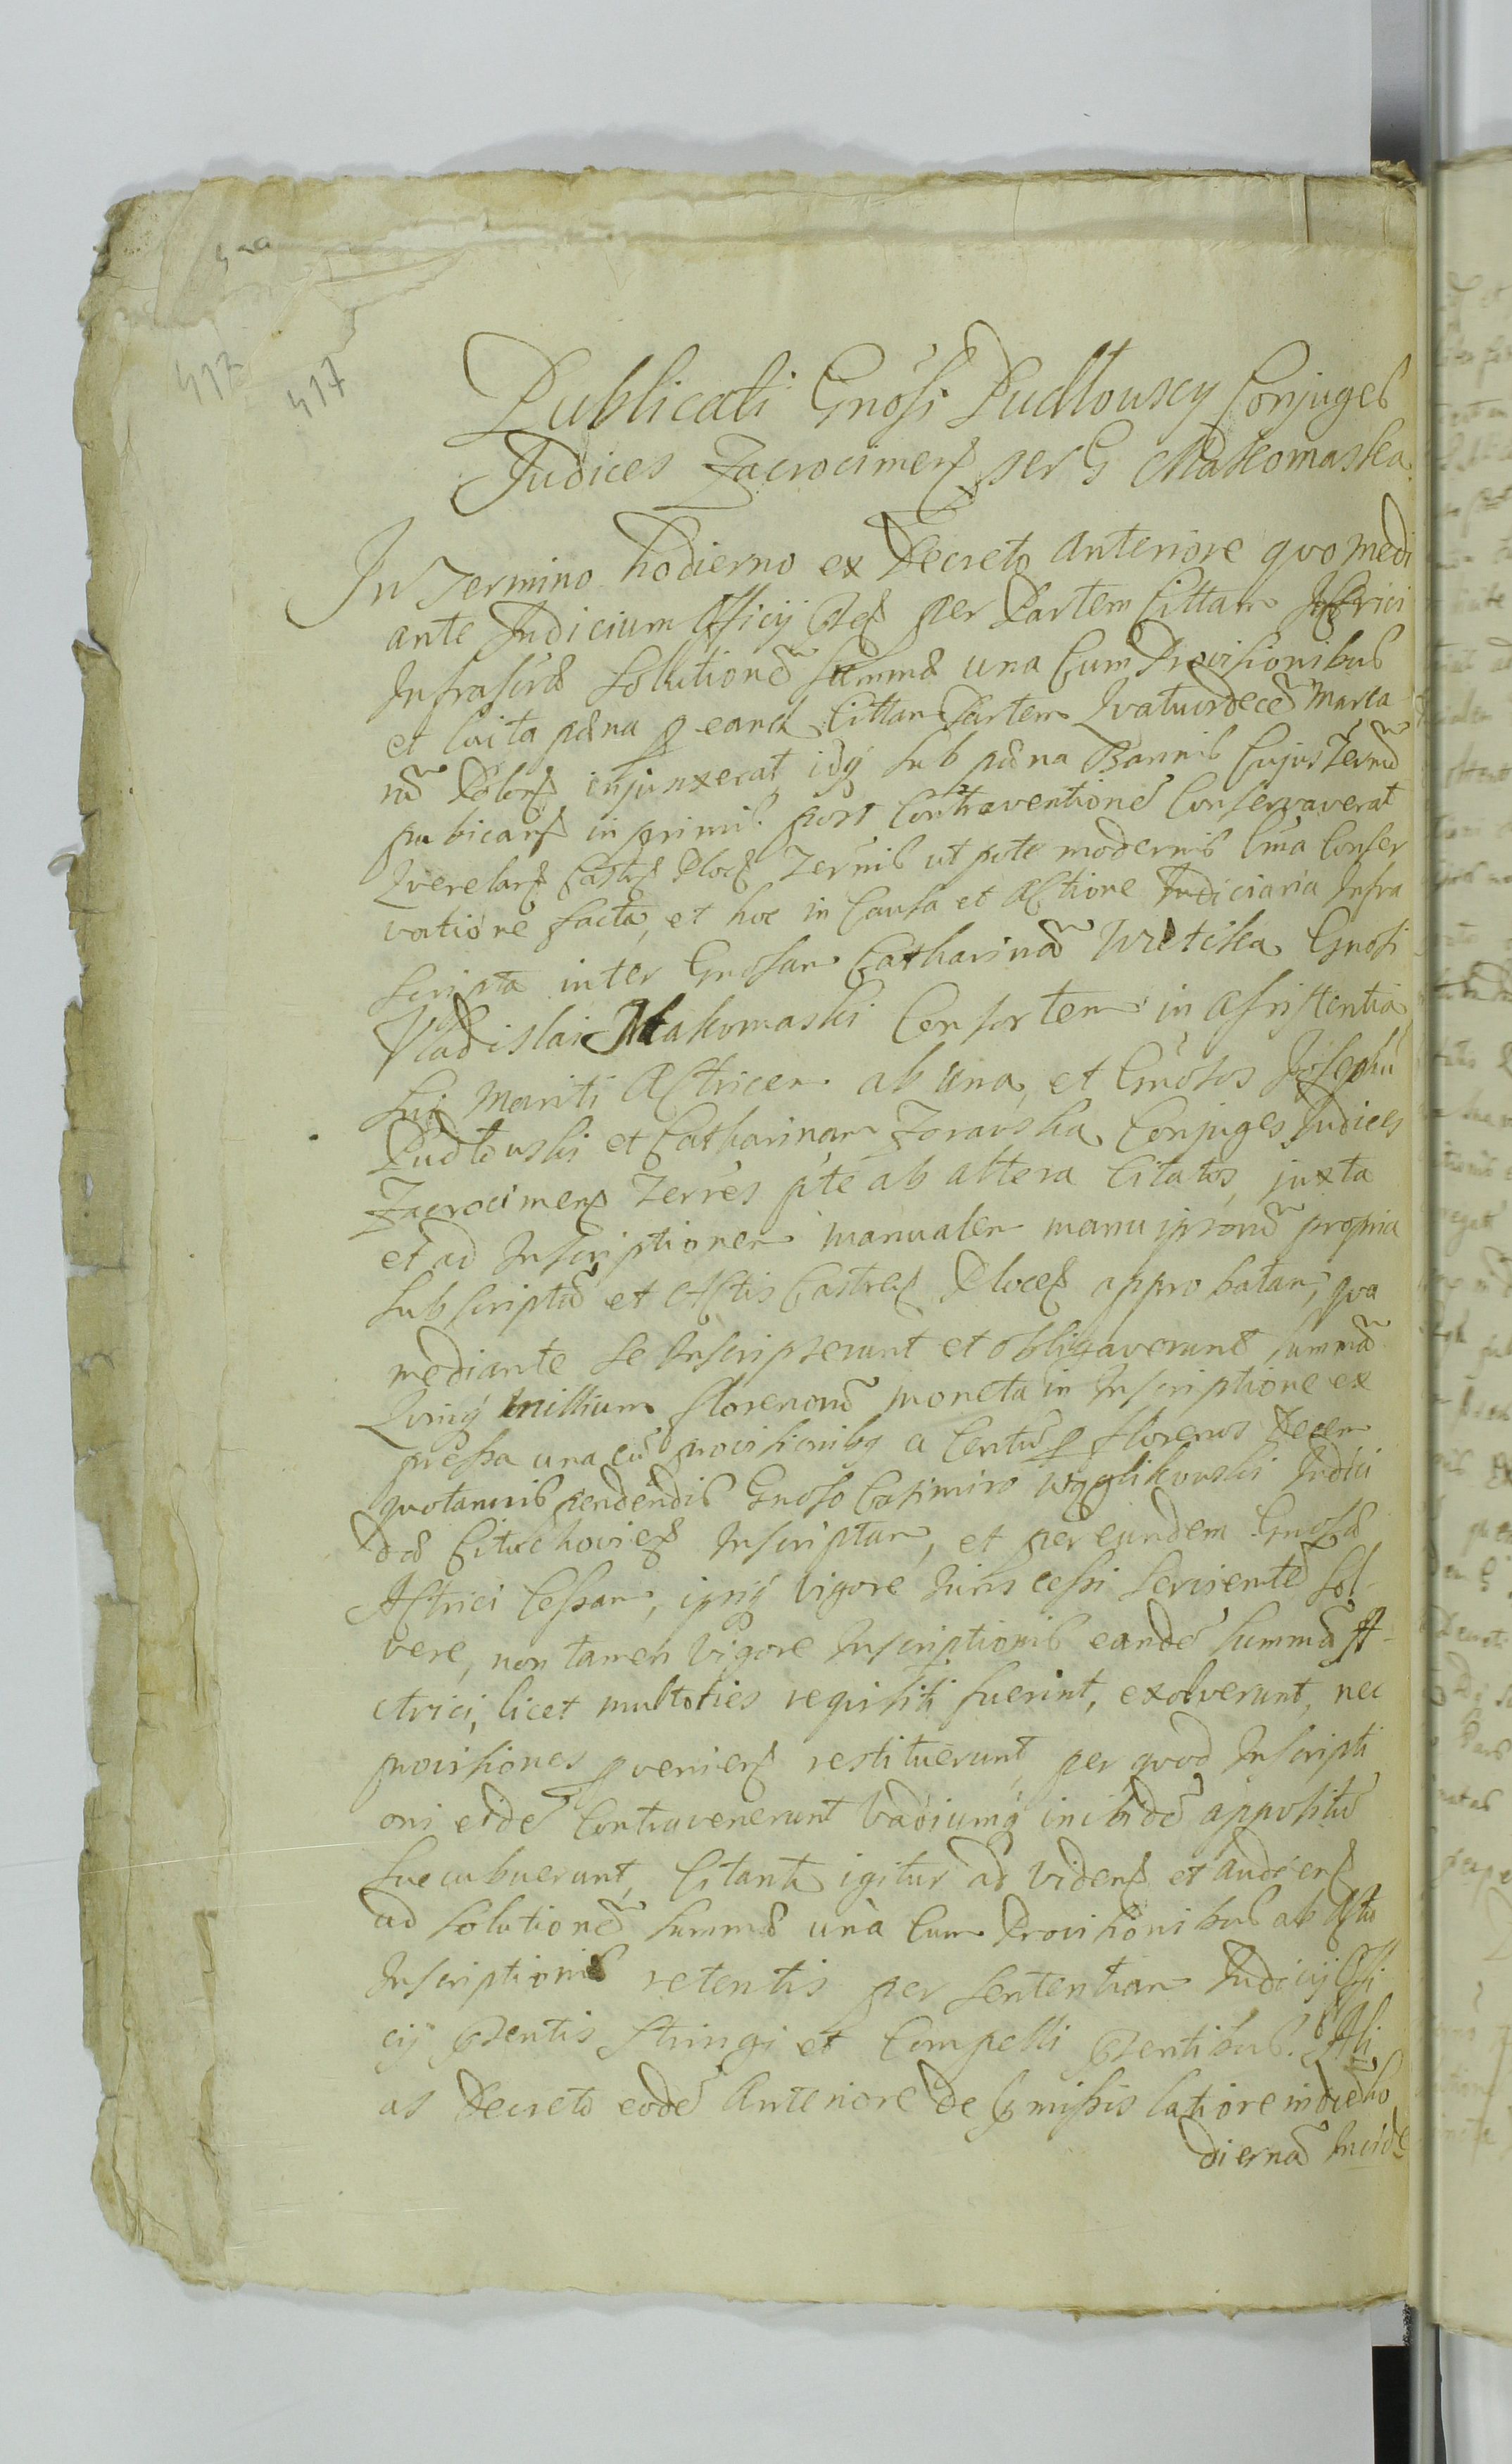 413 417
Publicati Gnosi Pudłowscy Conjuges
Judices Zacrocimen per G Makomaska
In Termino hodierno ex Decreto anteriore quo medi
ante Judicium Officÿ per Partem Cittam Actrici
Infrascrip solutione summæ una Cum Provisionibus
et luita pæna p eand Cittam Partem Quatuordecem Marca
rum Polon injunxerat, idq sub pæna Bannis Cujus Termin
publican in primis post Contraventione Conservaverat
Querelarum Castr Ploc Terñis utpote modernis Conser
vatione facta, et hoc in Causa et Actione Judiciaria Infra
scripta inter Gnosam Catharinam Gnosi
Vladislai Makomaski Consortem in assistentia
sui Mariti Actricem ab una, et Gnosos Josephu
Pudłowski et Catharinam Zorawska Conjuges Judices
Zacrocimen Terres pte ab altera Citatos, juxta
et ad Inscriptionem manualem manu ipsorum propria
subscriptam et Actis Castren Plocen approbatam, qva
mediante se Inscripserunt et obligaverunt summam
Qvinq millium florenorum moneta in Inscriptione ex
pressa una cu provisionibq a Centu p florenos Decem
qvotannis pendendis Gnoso Casimiro Judici
Inscriptam, et per eundem Gnosæ
Actrici Cessam, ipsiq vigore Juris cessi servientem sol-
vere, non tamen vigore Inscriptionis eande summam A-
ctrici, licet multoties requisiti fuerint, exolverunt, nec
provisiones pvenien restituerunt, per qvod Inscripti
oni eide Contravenerunt Vadiumq inibide appositu
succubuerunt, Citantr igitur ad Viden et audien
ad solutionem summæ una Cum Provisionibus ab Actu
Inscriptionis retentis per sententiam Judicÿ Offi
cÿ pntis stringi et Compelli pntibus. Ali
as Decreto eode Anteriore de pmissis latiore in die ho
diernam Incide